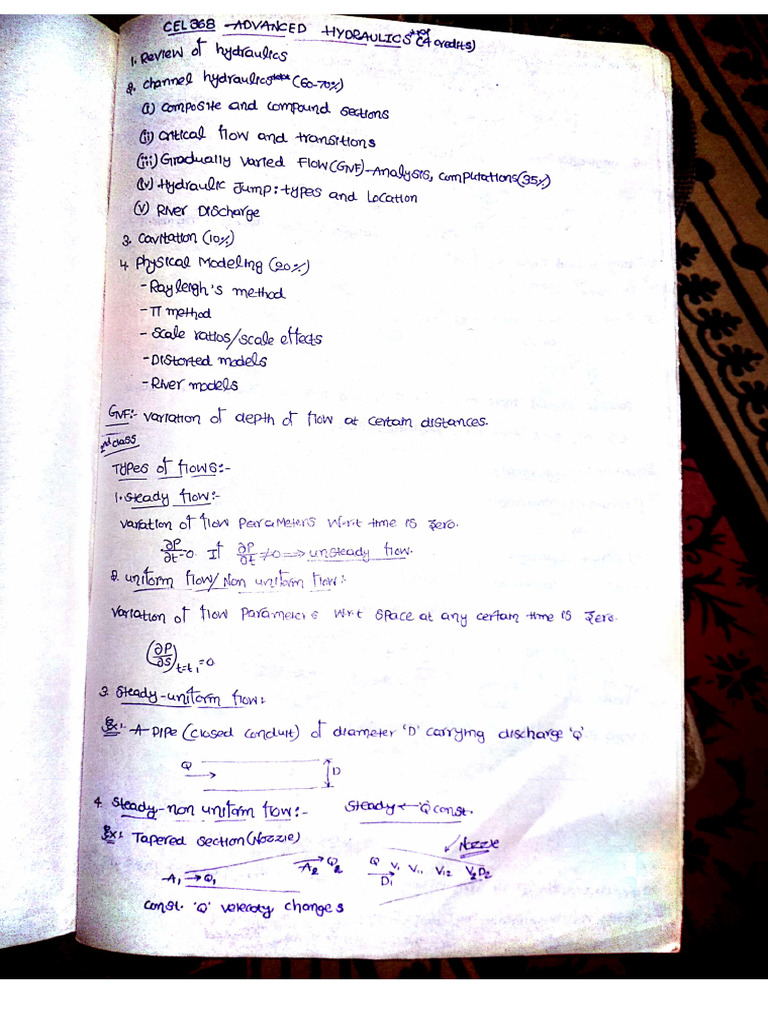 CEL368 - ADVANCED HYDRAULICS (4 credits)
1. Review of hydraulics
2. channel hydraulics**** (60-70%)
(i) composite and compound sections
(ii) critical flow and transitions
(iii) Gradually varied Flow(GVF)-Analysis, computations(35%)
(iv) Hydraulic Jump: types and Location
(v) River Discharge
3. cavitation (10%)
4. Physical Modeling (20%)
- Rayleigh's method
- π method
- Scale ratios/scale effects
- Distorted models
- River models
GVF:- variation of depth of flow at certain distances.
2nd class
Types of flows:-
1. Steady flow:-
variation of flow parameters w.r.t time is zero.
∂P/∂t=0. If ∂P/∂t≠0 => unsteady flow.
2. uniform flow/Non uniform flow:-
variation of flow parameters w.r.t space at any certain time is zero.
(∂P/∂s)t=t1=0
3. Steady-uniform flow:-
Ex:- A pipe (closed conduit) of diameter 'D' carrying discharge 'Q'
Q D
4. Steady-non uniform flow:- Steady ← Q const.
Ex: Tapered section(Nozzle) Nozzle
A1 → Q1 A2 Q2 Q D1 V1 V11 V12 V2 D2
const. 'Q' velocity changes